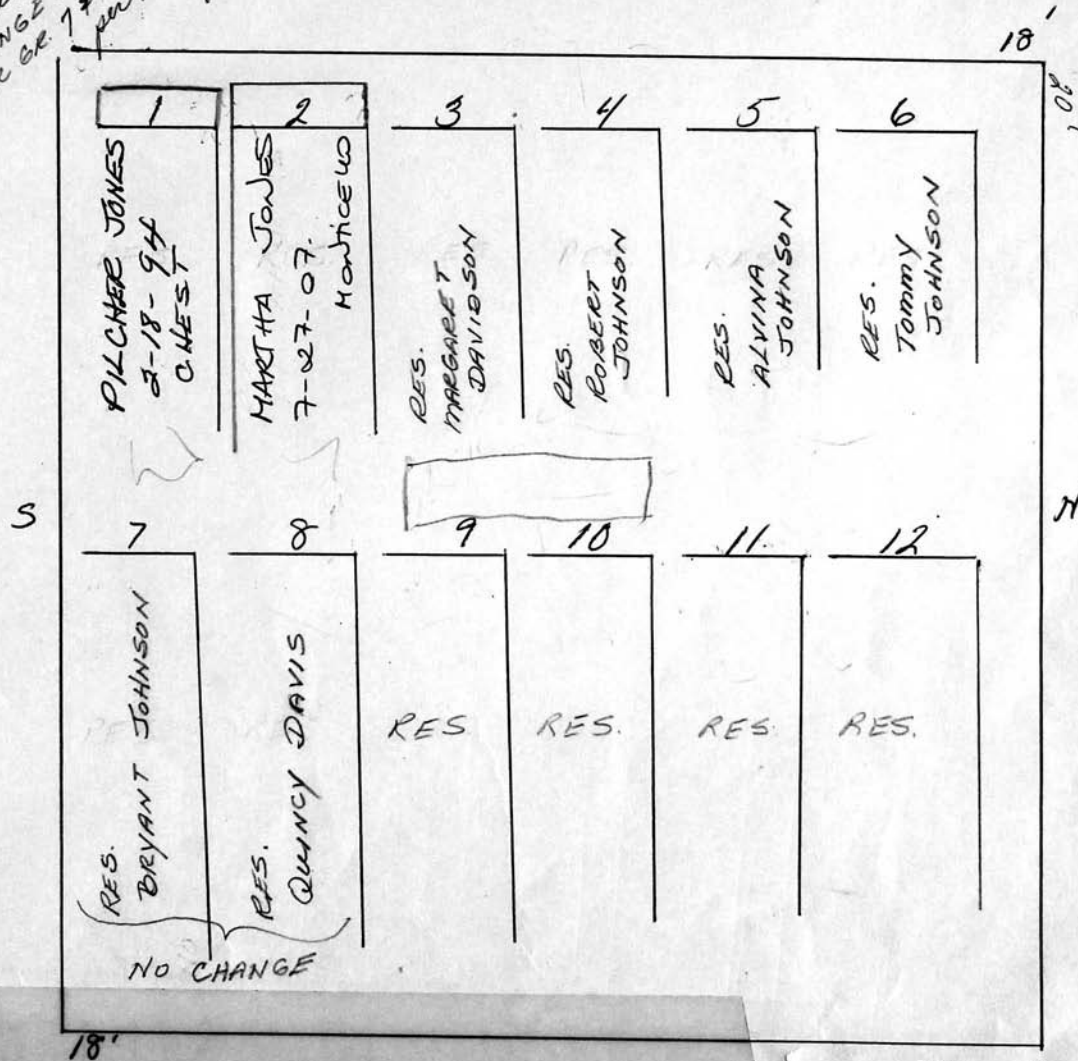 NGE
GR. 7 &
18'
20'
1
PILCHER JONES
2-18-94
CHEST
2
MARTHA JONES
7-27-07.
MONTICELLO
3
RES.
MARGARET
DAVIDSON
4
RES.
ROBERT
JOHNSON
5
RES.
ALVINA
JOHNSON
6
RES.
TOMMY
JOHNSON
S
N
7
RES.
BRYANT JOHNSON
8
RES.
QUINCY DAVIS
9
RES
10
RES.
11.
RES.
12
RES.
NO CHANGE
18'